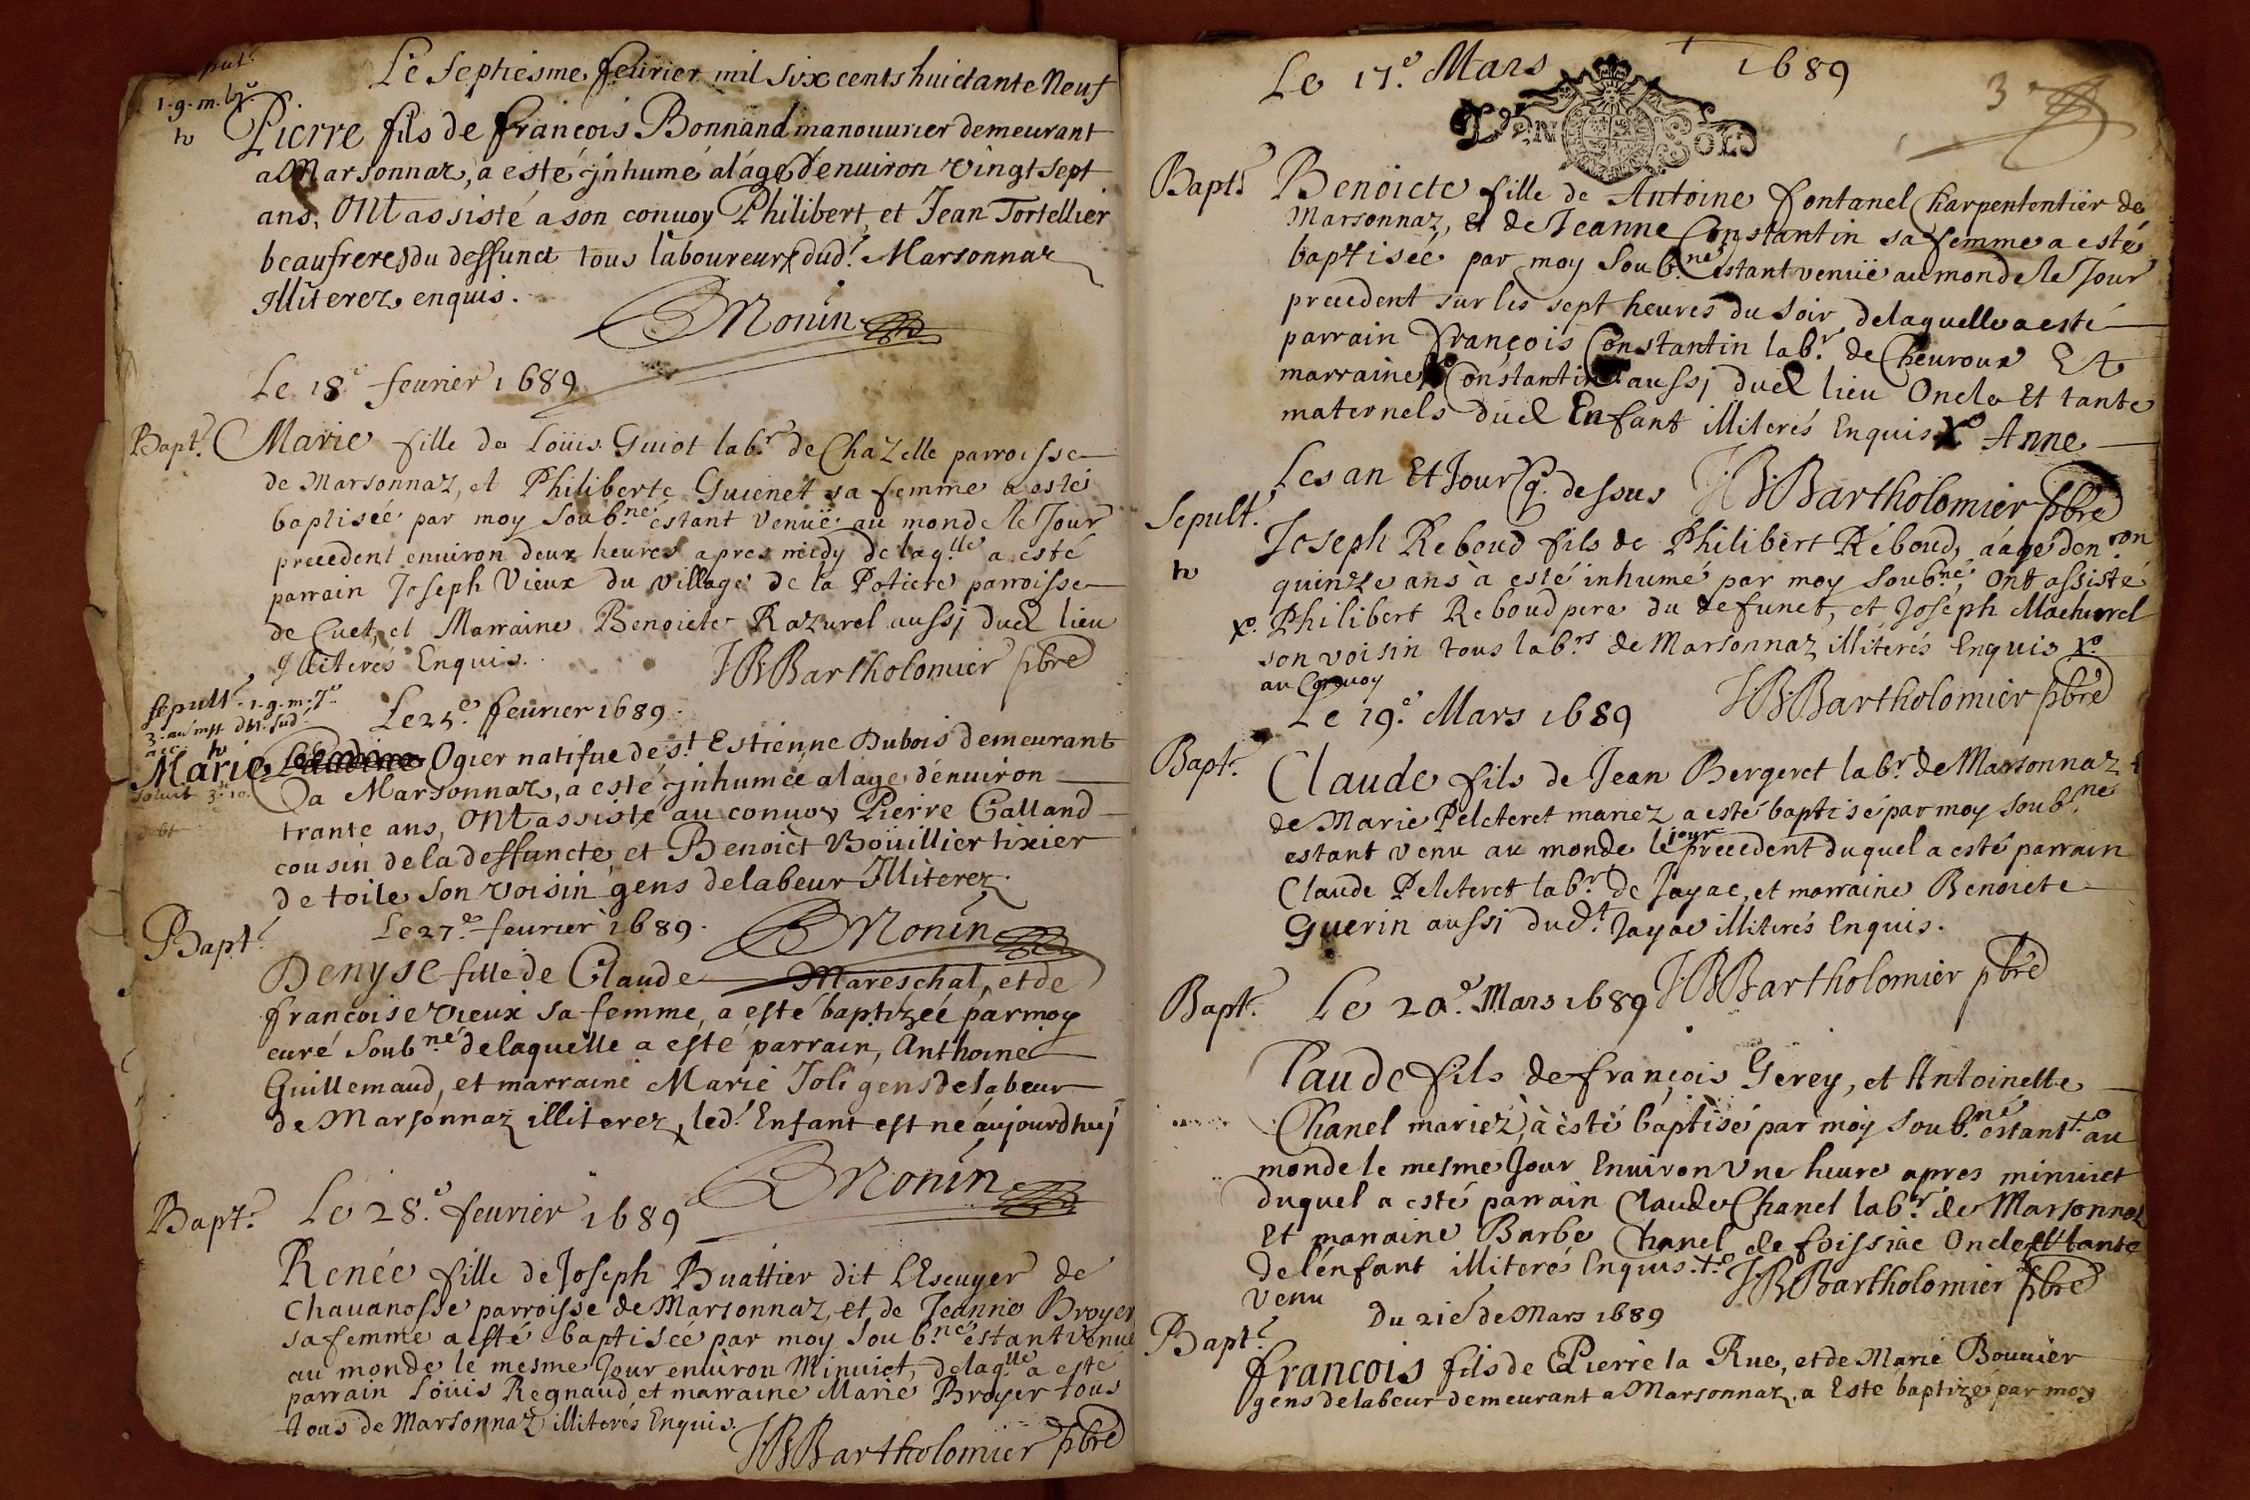 Le septiesme feurier mil six cents huictante Neuf
1. g. m.
Pierre fils de françois Bonnand manouurier demeurant
a Marsonnaz, a esté jnhumé a l'age d'enuiron vingt sept
ans, ont assisté a son conuoy Philibert, et Jean Tortellier
beaufreres du deffunct tous laboureurs dud.t Marsonnaz
Illiterez enquis.
Monin
Le 18.e feurier 1689
Bapt.e Marie fille de Loüis Guiot lab.r de Chazelle parroisse
de Marsonnaz, et Philiberte Guienet sa femme a esté
baptiseé par moy soub.né estant venuë au monde le Jour
precedent enuiron deux heures apres midy de laq.lle a esté
parrain Joseph Vieux du village de la Potiere parroisse
de Cuet, et Marraine Benoicte Razurel aussj dud lieu
Illiterés Enquis.
JBBartholomier pbre
Sepult.e 1. g. m.
Le 25.e feurier 1689.
Marie Ogier natifue de s.t Estienne Dubois demeurant
a Marsonnaz, a esté jnhumeé a l'age d'enuiron
trante ans, ont assisté au conuoy Pierre Galland
cousin de la deffuncte, et Benoict Boüillier tixier
de toile son voisin gens de labeur Illiterez.
Le 27.e feurier 1689.
Monin
Bapt.e
Denyse fille de Claude Mareschal, et de
françoise vieux sa femme, a esté baptizeé par moy
curé soub.né de laquelle a esté parrain, Anthoine
Guillemaud, et marraine Marie Joli gens de labeur
de Marsonnaz illiterez, led.t Enfant est né aujourdhuj
Monin
Bapt.e Le 28.e feurier 1689
Renée fille de Joseph Buattier dit L'Escuyer de
Chauanosse parroisse de Marsonnaz, et de Jeanne Broyer
sa femme a esté baptiseé par moy soub.né estant venue
au monde le mesme Jour enuiron Minuict, de laq.lle a esté
parrain Loüis Regnaud, et marraine Marie Broyer tous
tous de Marsonnaz illiterés Enquis.
JBBartholomier pbre
Le 17.e Mars 1689
3
Bapt.e Benoicte fille de Antoine fontanel Charpententier de
Marsonnaz, Et de Jeanne Constantin sa femme a esté
baptiseé par moy soub.né estant venuë au monde le Jour
precedent sur les sept heures du soir de laquelle a esté
parrain françois Constantin lab.r de Cheuroux Et
marraine Constantin aussj dud lieu Oncle Et tante
maternels dud Enfant illiterés Enquis X.o Anne
Les an Et Jour q. dessus JBBartholomier pbre
Sepult.e
Joseph Reboud fils de Philibert Réboud, aagé d'en.ron
quinze ans a esté inhumé par moy soub.né, ont assisté
X.o Philibert Reboud pere du defunct, et Joseph Machurel
son voisin tous lab.rs de Marsonnaz illiterés Enquis X.o
au Conuoy
JBBartholomier pbre
Le 19.e Mars 1689
Bapt.e
Claude fils de Jean Bergeret lab.r de Marsonnaz &
de Marie Peleteret mariez a esté baptisé par moy soub.né
estant venu au monde le jour precedent duquel a esté parrain
Claude Peleteret lab.r de Jayac, et marraine Benoicte
Guerin aussi dud.t Jayac illiterés Enquis.
JBBartholomier pbre
Bapt.e Le 20.e Mars 1689
Claude fils de françois Gerey, et Antoinette
Chanel mariez, à esté baptisé par moy soub.né estant t.o au
monde le mesme Jour Enuiron Vne heure apres minuict
duquel a esté parrain Claude Chanel lab.r de Marsonnaz
Et marraine Barbe Chanel de foissiac Oncle et tante
de l'enfant illiterés Enquis. t.o JBBartholomier pbre
venu
Du 21ie de Mars 1689
Bapt.e
françois fils de Pierre la Rue, et de Marie Bouuier
gens de labeur demeurant a Marsonnaz, a Esté baptizé par moy